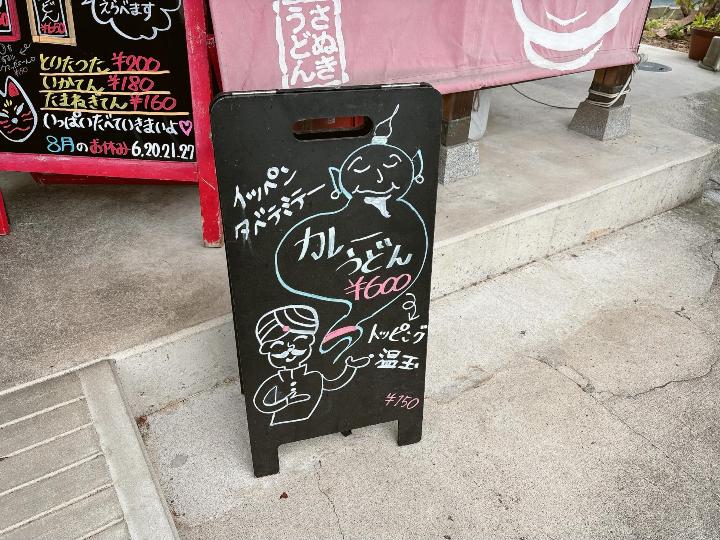 えらべます
¥650
とりたつた ¥200
いかてん ¥180
たまねぎてん ¥160
いっぱいたべていきまいよ
8月のお休み 6,20,21,27
さぬき
うどん
イッペン
タベテミテー
カレー
うどん
¥600
トッピング
温玉
¥150